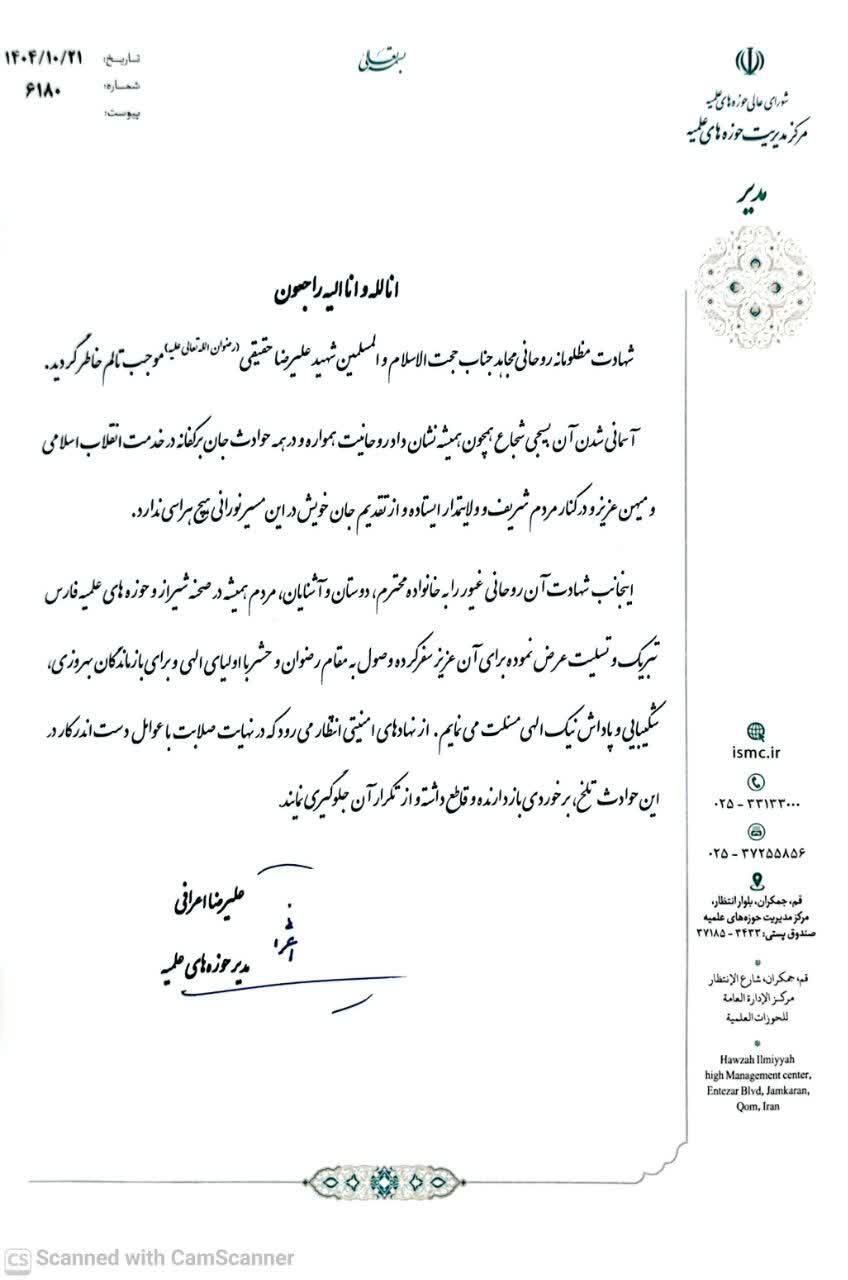 بسمه تعالی
شورای عالی حوزه های علمیه
مرکز مدیریت حوزه های علمیه
مدیر
تاریخ: ۱۴۰۴/۱۰/۲۱
شماره: ۶۱۸۰
پیوست:
انا لله و انا الیه راجعون
شهادت مظلومانه روحانی مجاهد جناب حجت الاسلام و المسلمین شهید علیرضا حقیقی (رضوان الله تعالی علیه) موجب تالم خاطر گردید.
آسمانی شدن آن بسیجی شجاع همچون همیشه نشان داد روحانیت همواره و در همه حوادث جان برکفانه در خدمت انقلاب اسلامی
و میهن عزیز و در کنار مردم شریف و ولایتمدار ایستاده و از تقدیم جان خویش در این مسیر نورانی هیچ هراسی ندارد.
اینجانب شهادت آن روحانی غیور را به خانواده محترم، دوستان و آشنایان، مردم همیشه در صحنه شیراز و حوزه های علمیه فارس
تبریک و تسلیت عرض نموده برای آن عزیز سفر کرده وصول به مقام رضوان و حشر با اولیای الهی و برای بازماندگان بهروزی،
شکیبایی و پاداش نیک الهی مسئلت می نمایم. از نهادهای امنیتی انتظار می رود که در نهایت صلابت با عوامل دست اندرکار در
این حوادث تلخ، برخوردی بازدارنده و قاطع داشته و از تکرار آن جلوگیری نمایند.
علیرضا اعرافی
مدیر حوزه های علمیه
ismc.ir
۰۲۵ - ۳۳۱۳۳۰۰۰
۰۲۵ - ۳۷۲۵۵۸۵۶
قم، جمکران، بلوار انتظار،
مرکز مدیریت حوزه‌های علمیه
صندوق پستی: ۳۴۳۳ - ۳۷۱۸۵
قم، جمکران، شارع الإنتظار
مركز الإدارة العامة
للحوزات العلمية
Hawzah Ilmiyyah
high Management center,
Entezar Blvd, Jamkaran,
Qom, Iran
CS Scanned with CamScanner